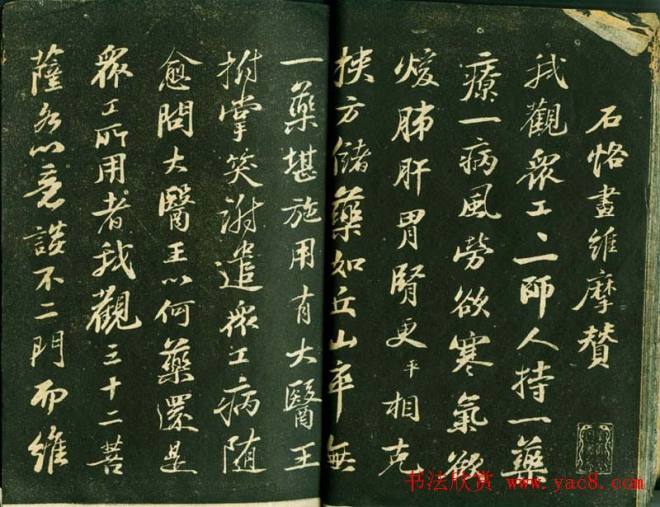 石恪畫維摩贊
我觀衆工〻一師人持一藥
療一病風勞欲寒氣欲
煖肺肝胃腎更平相克
挾方儲藥如丘山卒無
一藥堪施用有大醫王
拊掌笑謝遣衆工病随
愈問大醫王以何藥還是
衆工所用者我觀三十二菩
薩各以意談不二門而維
书法欣赏 www.yac8.com